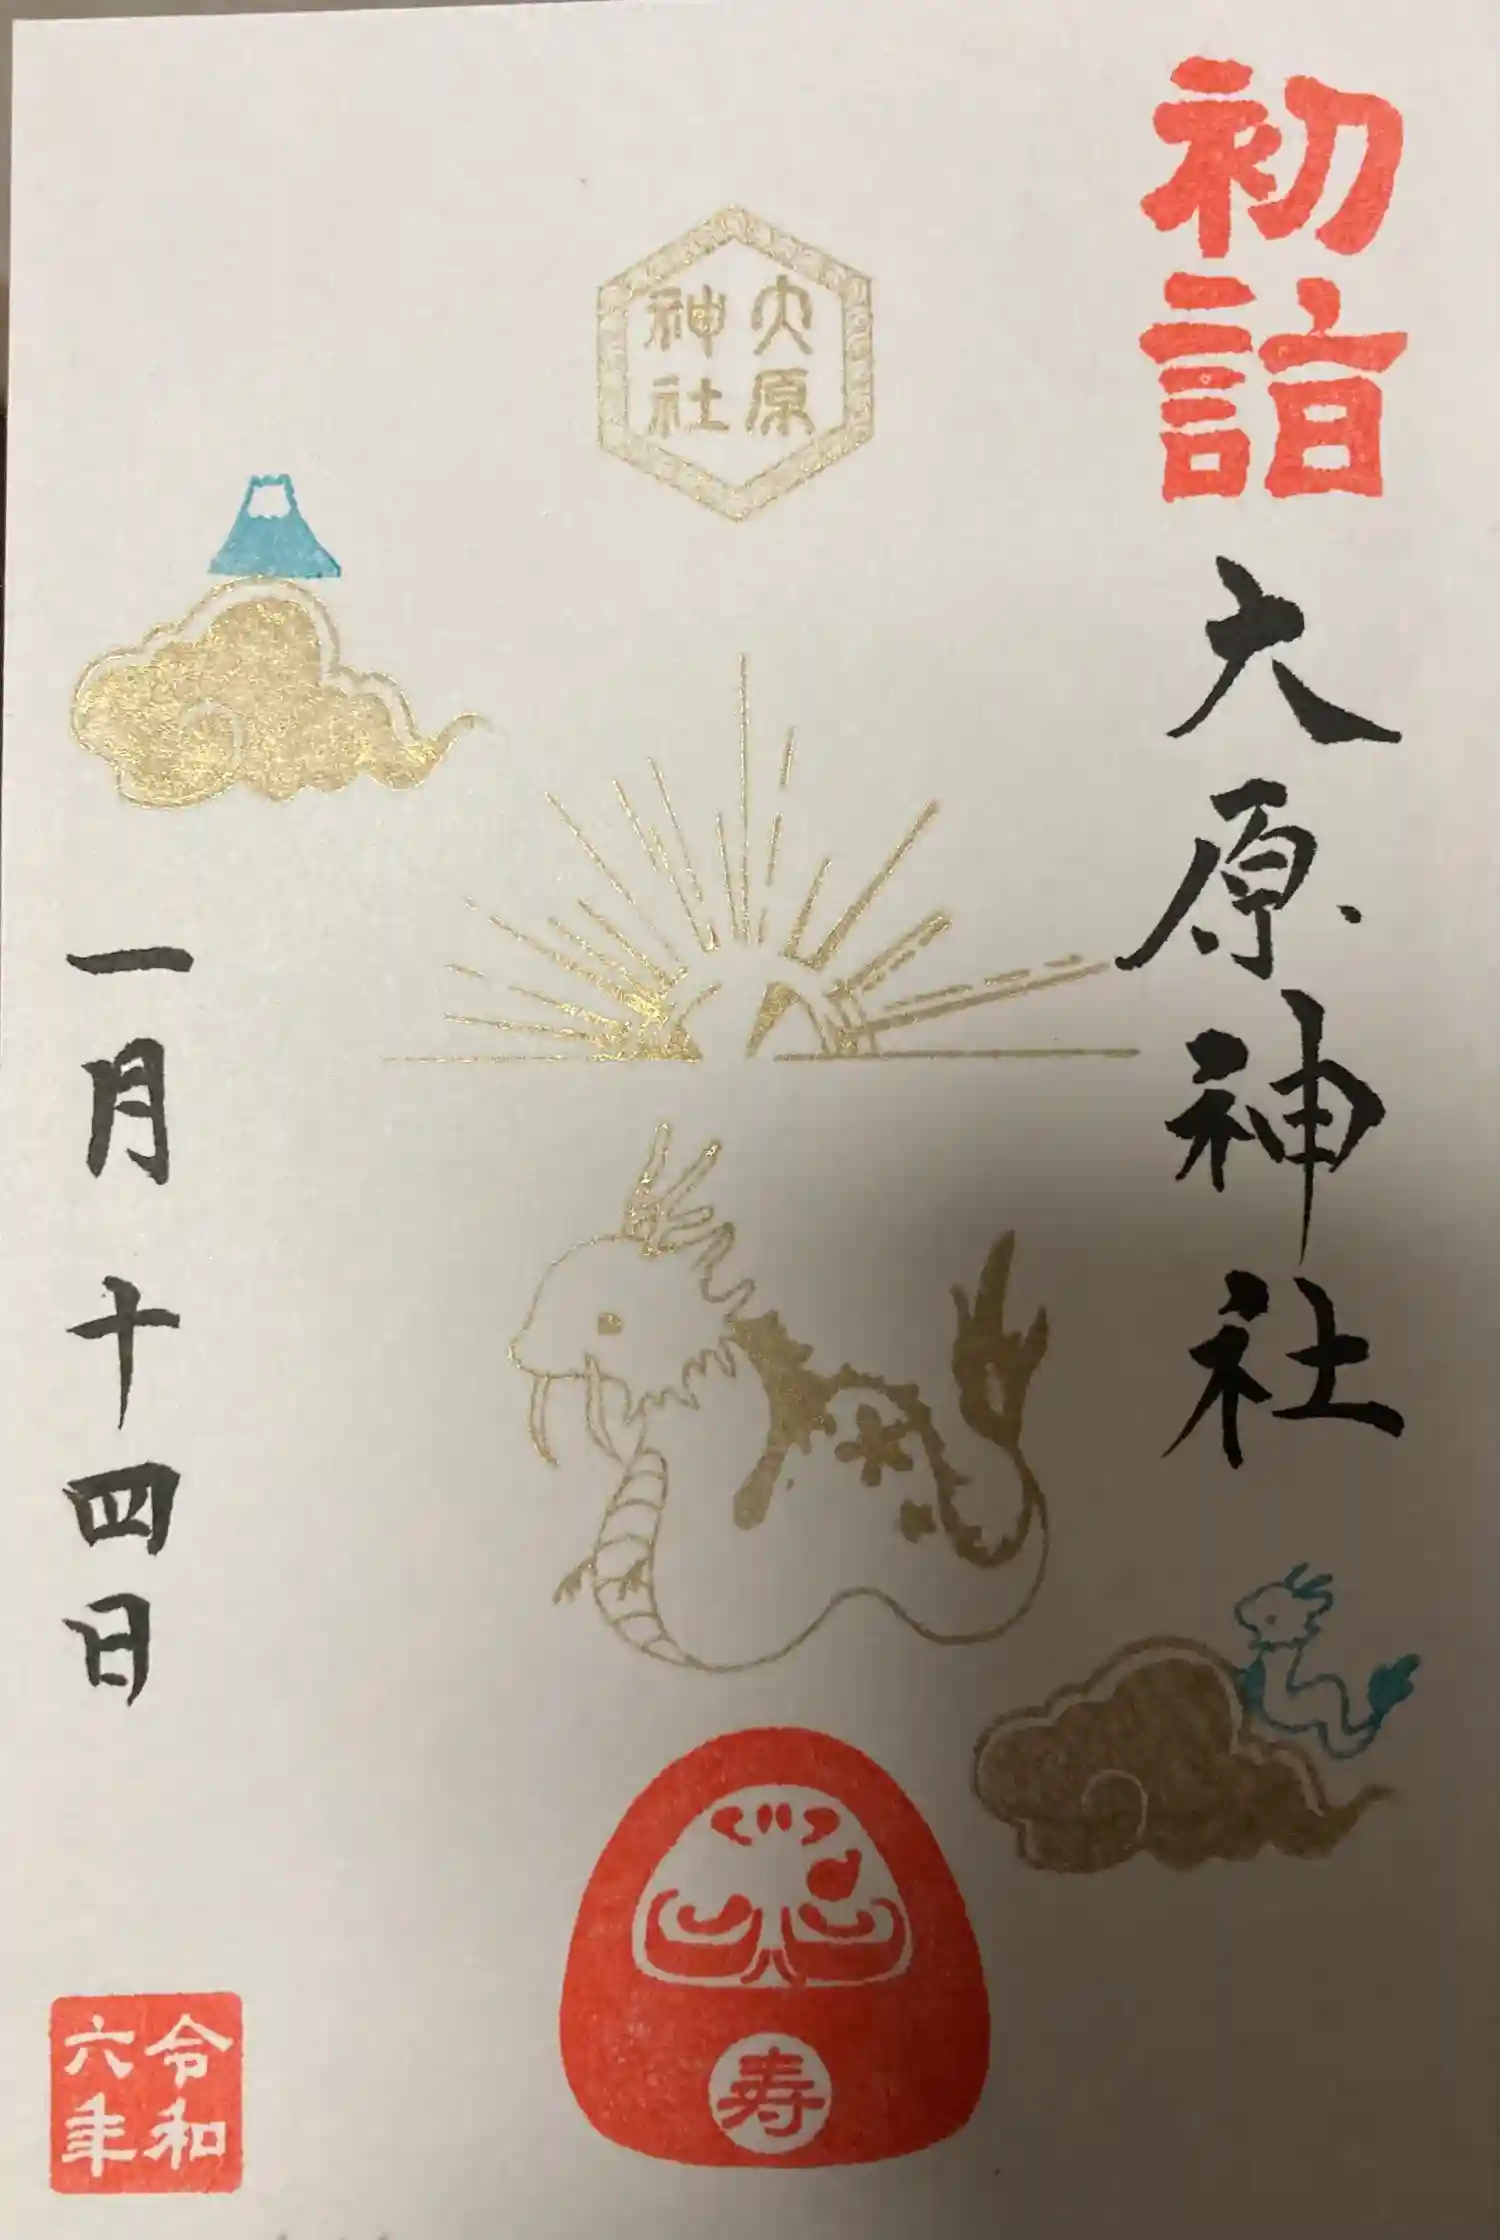 初詣
大原神社
大原
神社
一月十四日
寿
令和
六年